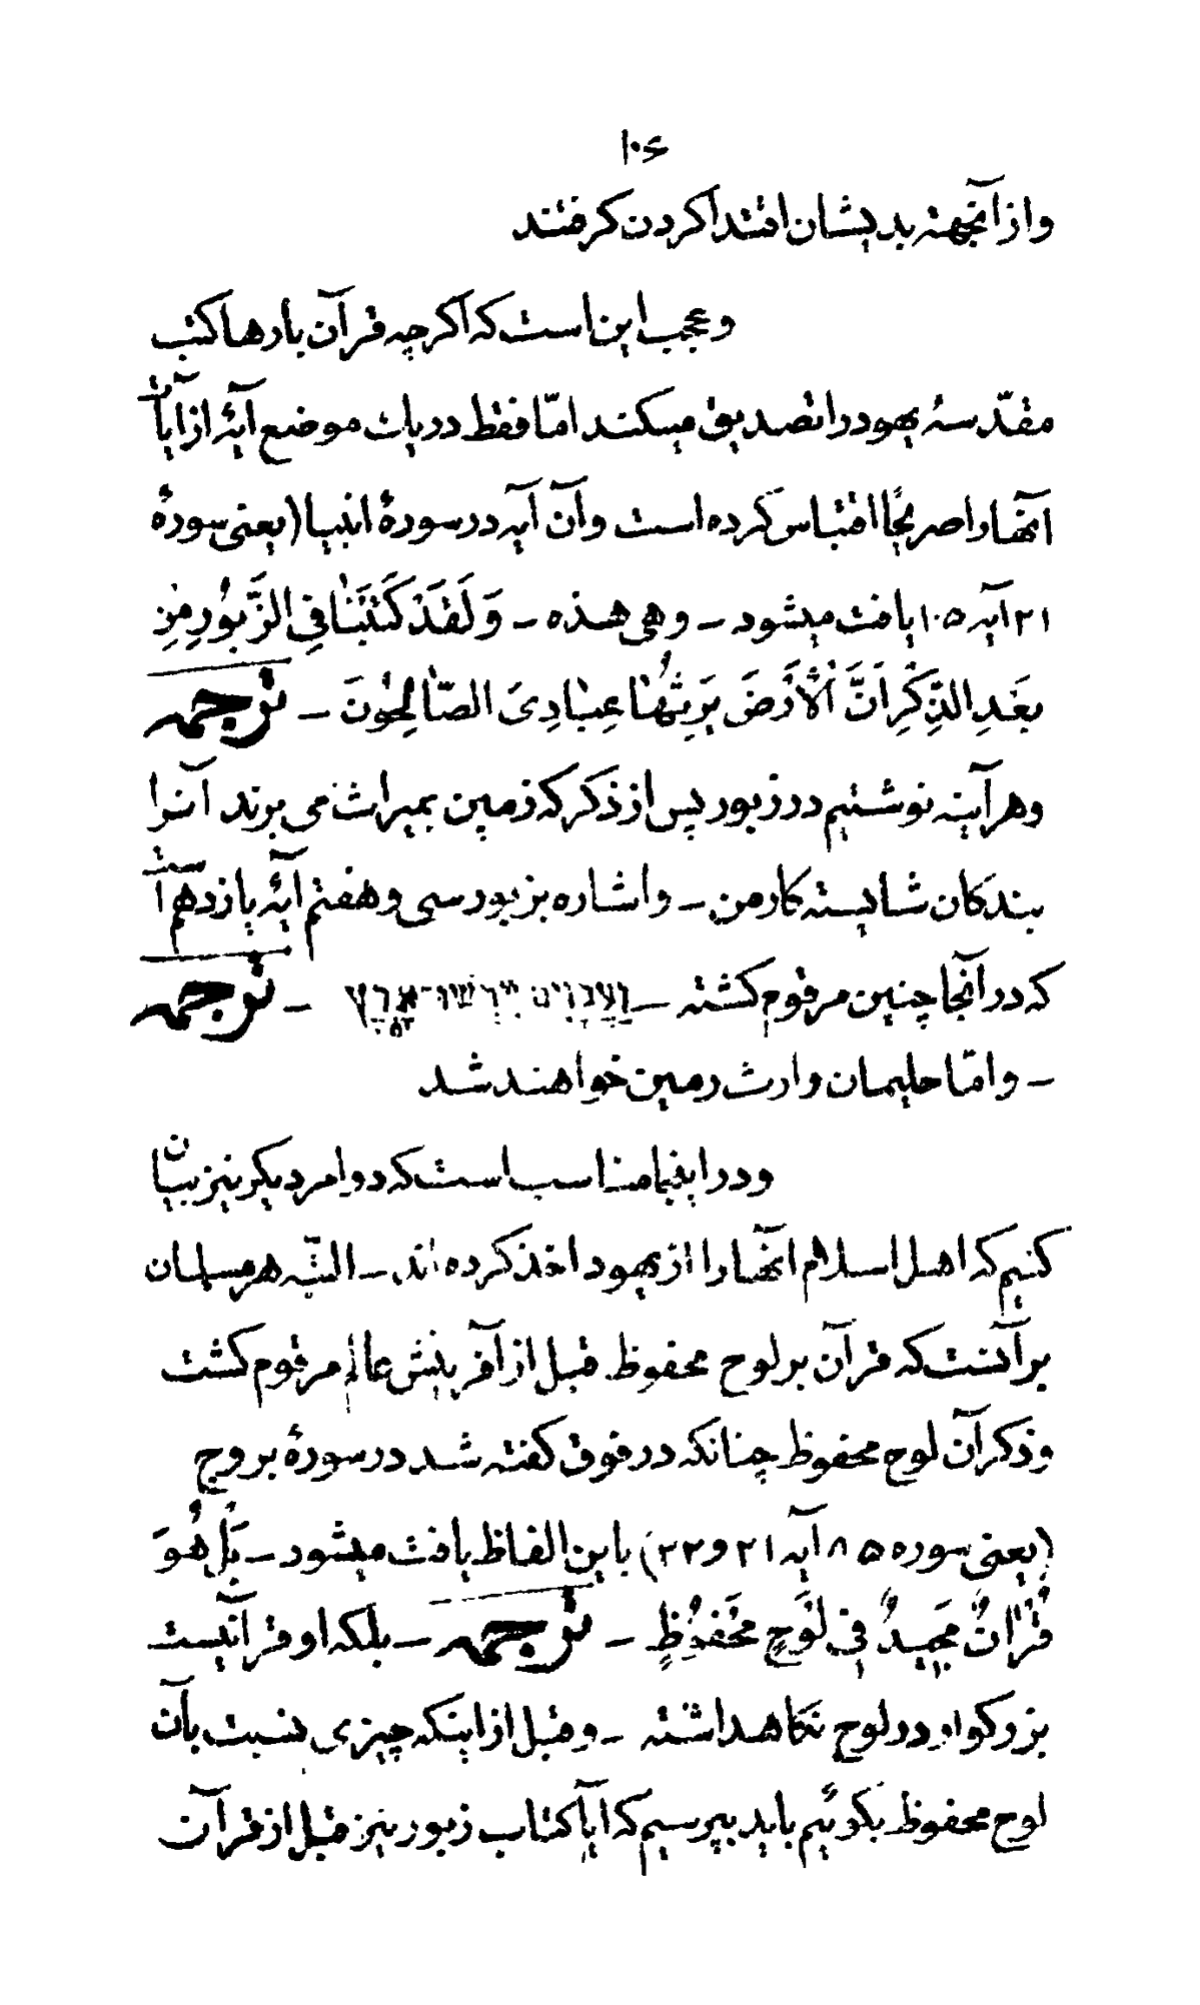 ۱۰۶
و از آنجهته بدیشان اقتدا کردن کرفتند
و عجب این است که اکرچه قرآن بارها کتب
مقدّسهٔ یهود را تصدیق میکند امّا فقط در یک موضع آیهٔ از آیات
آنها را صریحًا اقتباس کرده است و آن آیه در سورهٔ انبیا (یعنی سورهٔ
۲۱ آیه ۱۰۵ یافت میشود – و هی هذه – وَلَقَدْ كَتَبْنَا فِي الزَّبُورِ مِنْ
بَعْدِ الذِّكْرِ اَنَّ الْأَرْضَ يَرِثُهَا عِبَادِيَ الصَّالِحُونَ – ترجمه
و هر آینه نوشتیم در زبور پس از ذکر که زمین بمیراث می برند آنرا
بندکان شایسته کار من – و اشاره بزبور سی و هفتم آیهٔ یازدهم است
که در آنجا چنین مرقوم کشته – וַעֲנָוִים יִירְשׁוּ־אָרֶץ – ترجمه
– و امّا حلیمان وارث زمین خواهند شد
و در اینجا مناسب است که دو امر دیکر نیز بیان
کنیم که اهل اسلام آنها را از یهود اخذ کرده اند – البتّه هر مسلمان
بر آنست که قرآن بر لوح محفوظ قبل از آفرینش عالم مرقوم کشت
و ذکر آن لوح محفوظ چنانکه در فوق کفته شد در سورهٔ بروج
(یعنی سوره ۸۵ آیه ۲۱ و ۲۲) باین الفاظ یافت میشود – بَلْ هُوَ
قُرْآنٌ مَجِيدٌ فِي لَوْحٍ مَحْفُوظٍ – ترجمه – بلکه او قرآنیست
بزرکوار در لوح نکاهداشته – و قبل از اینکه چیزی بنسبت بآن
لوح محفوظ بکوئیم باید بپرسیم که آیا کتاب زبور نیز قبل از قرآن